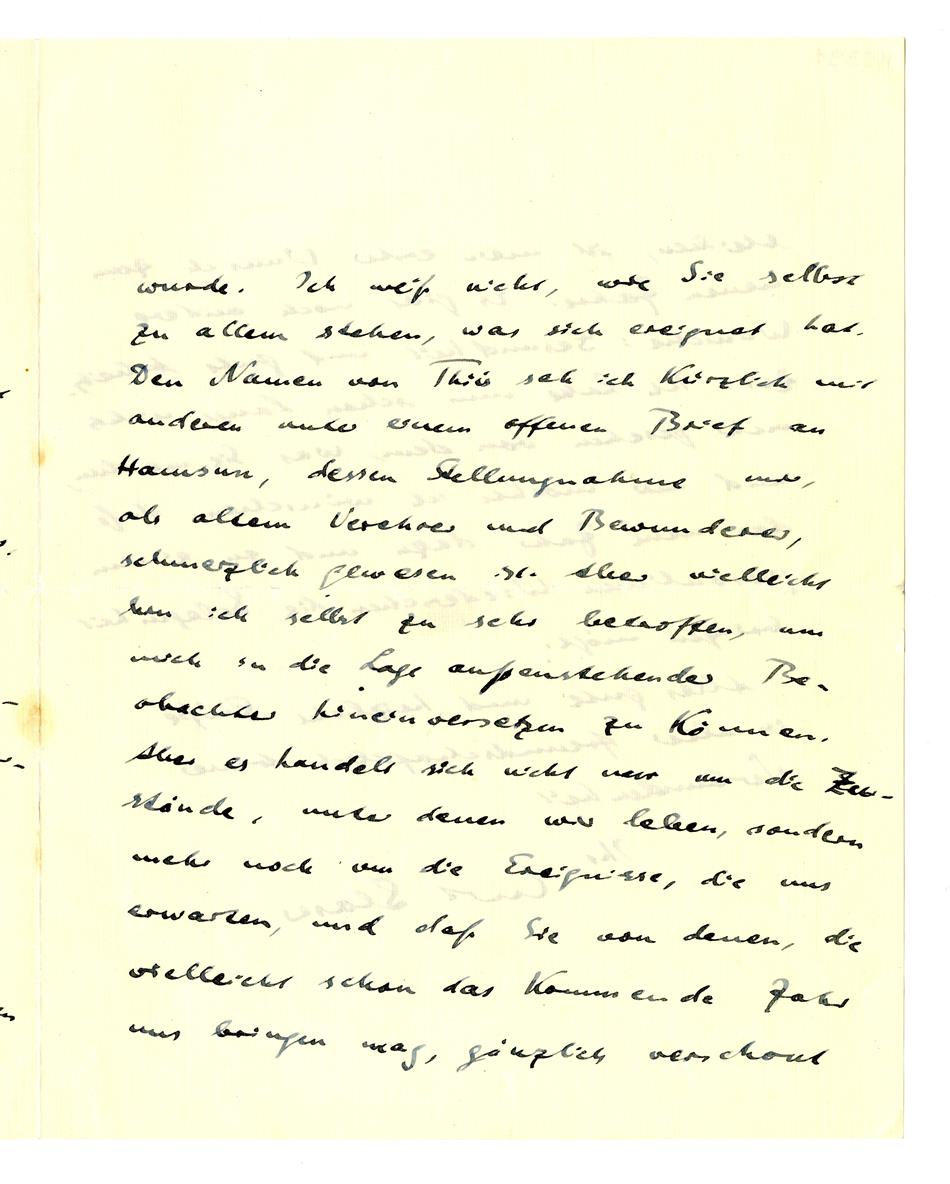 wurde. Ich weiß nicht, wie Sie selbst
zu allem stehen, was sich ereignet hat.
Den Namen von Thiis sah ich kürzlich mit
anderen unter einem offenen Brief an
Hamsun, dessen Stellungnahme mir,
als altem Verehrer und Bewunderer,
schmerzlich gewesen ist. Aber vielleicht
bin ich selbst zu sehr betroffen, um
mich in die Lage außenstehender Be-
obachter hineinversetzen zu können.
Aber es handelt sich nicht nur um die Zu-
stände, unter denen wir leben, sondern
mehr noch um die Ereignisse, die uns
erwarten, und daß Sie von denen, die
vielleicht schon das kommende Jahr
uns bringen mag, gänzlich verschont